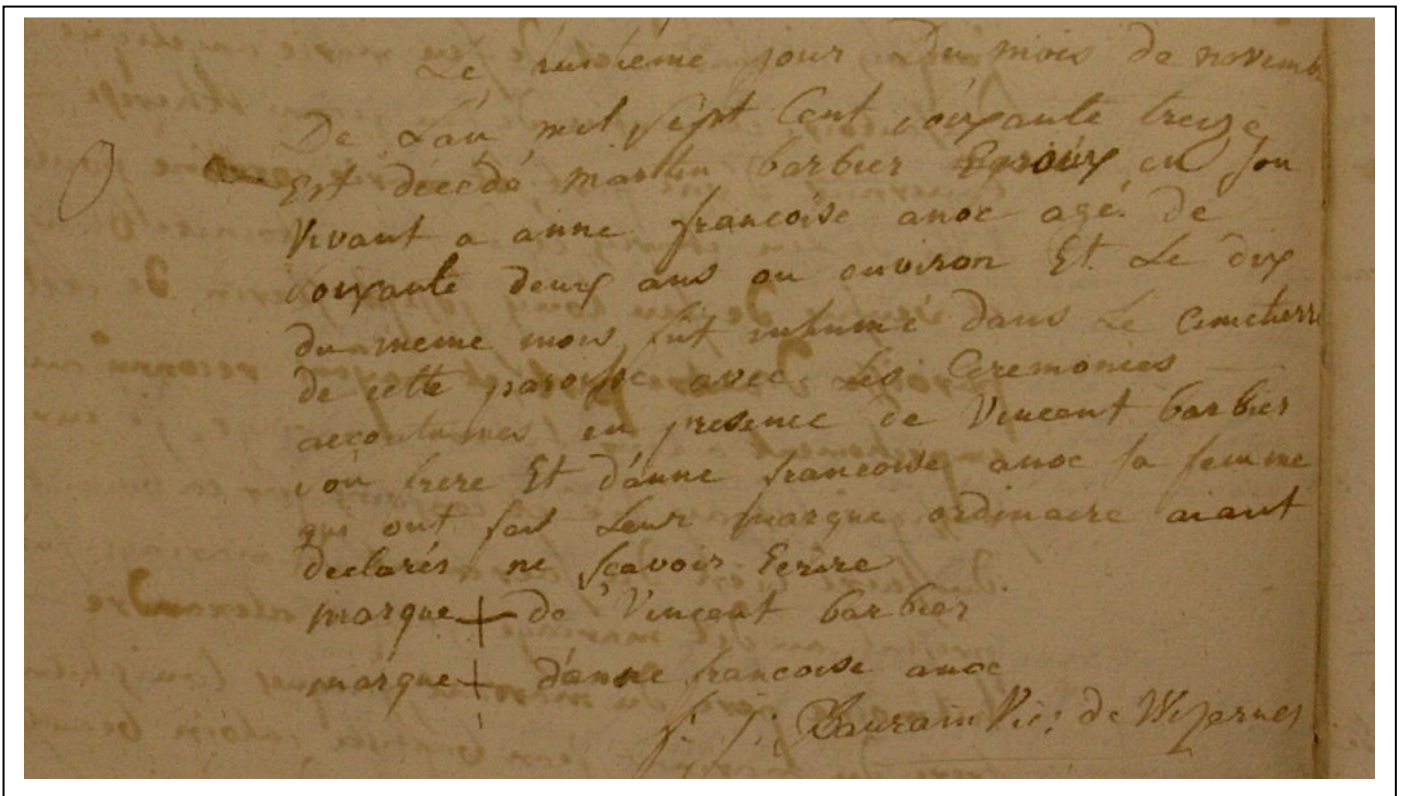 Le huitieme jour Du mois de novemb
De Lan mil sept Cent soixante treize
Est décédé martin barbier Epoux en son
Vivant a anne francoise anoc agé de
soixante deux ans ou environ Et Le dix
du meme mois fut inhumé dans Le Cimetierre
de cette paroisse avec Les Ceremonies
accoutumes en presence de Vincent barbier
son frere Et d'anne francoise anoc sa femme
qui ont fait Leur marque ordinaire aiant
declarés ne scavoir Ecrire
marque + de Vincent barbier
marque + d'anne francoise anoc
j. j. Baurain Vic: de Wizernes